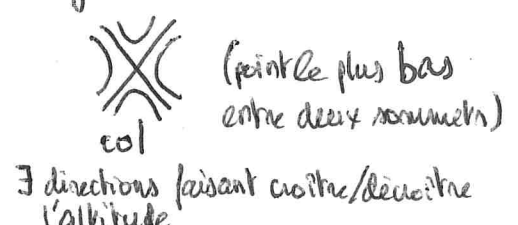 (point le plus bas
entre deux sommets)
col
∃ directions faisant croître/décroître
l'altitude